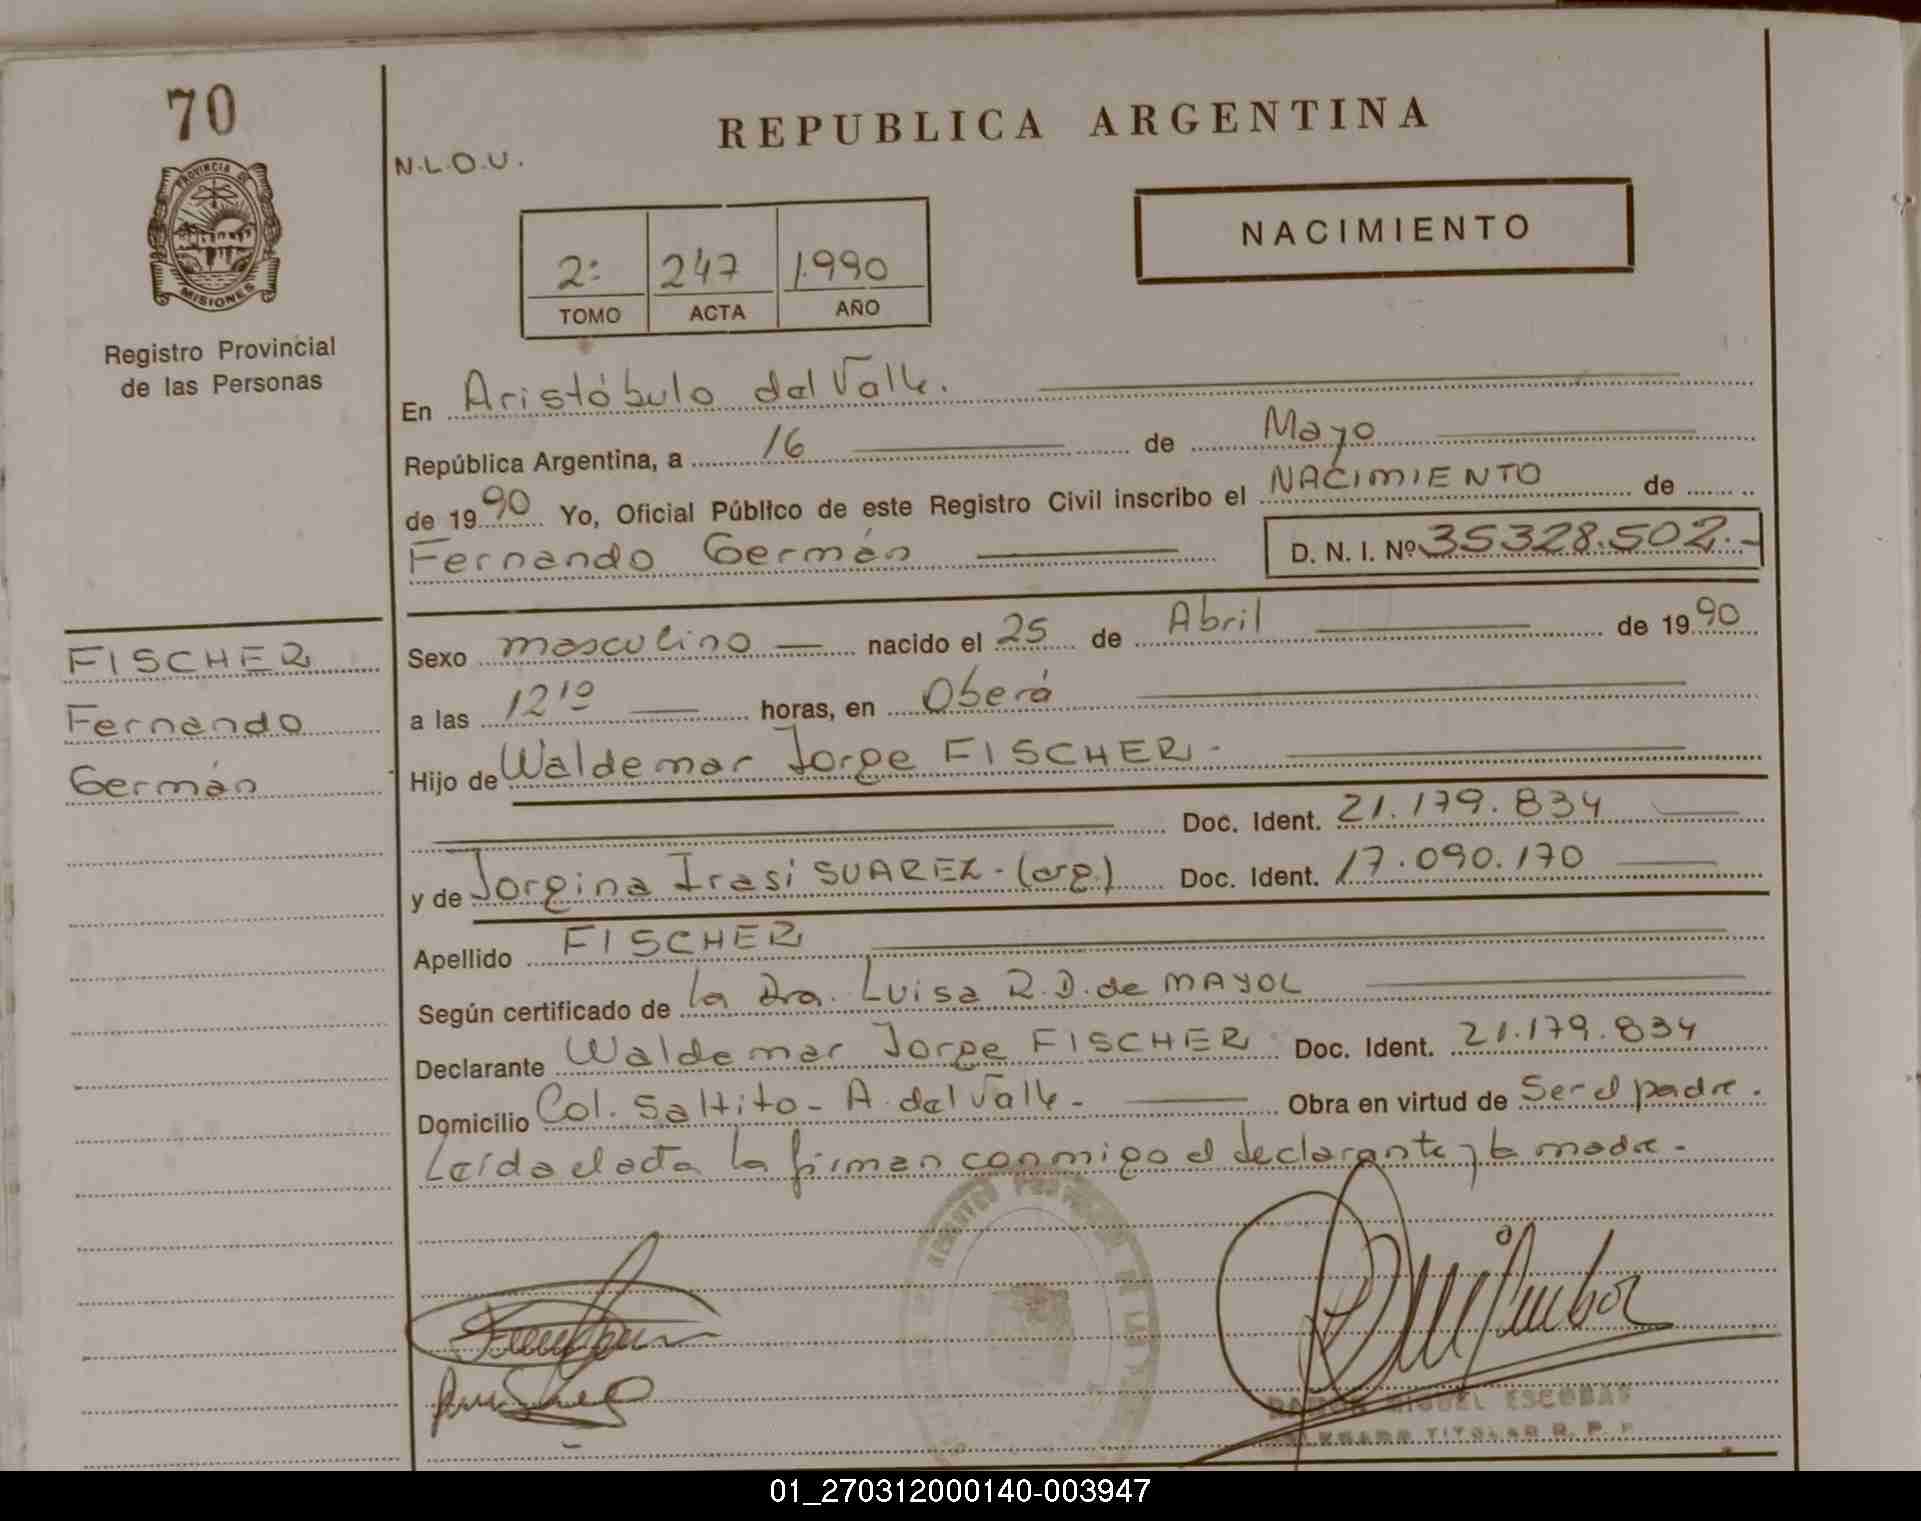 70
PROVINCIA DE
MISIONES
Registro Provincial
de las Personas
FISCHER
Fernando
Germán
REPUBLICA ARGENTINA
N.L.O.U.
NACIMIENTO
2: 247 1.990
TOMO ACTA AÑO
En Aristóbulo del Valle.
República Argentina, a 16 de Mayo
de 1990 Yo, Oficial Público de este Registro Civil inscribo el NACIMIENTO de
Fernando Germán D. N. I. Nº 35328.502.-
Sexo masculino nacido el 25 de Abril de 1990
a las 12 10 horas, en Oberá
Hijo de Waldemar Jorge FISCHER.-
Doc. Ident. 21.179.834
y de Jorgina Irasi SUAREZ - (arg.) Doc. Ident. 17.090.170
Apellido FISCHER
Según certificado de la Dra. Luisa R.D. de MAYOL
Declarante Waldemar Jorge FISCHER Doc. Ident. 21.179.834
Domicilio Col. Saltito - A. del Valle - Obra en virtud de Ser el padre.
Leída el acta la firman conmigo el declarante y la madre.-
RAMON MIGUEL ESCOBAR
TITULAR R. P. P.
01_270312000140-003947